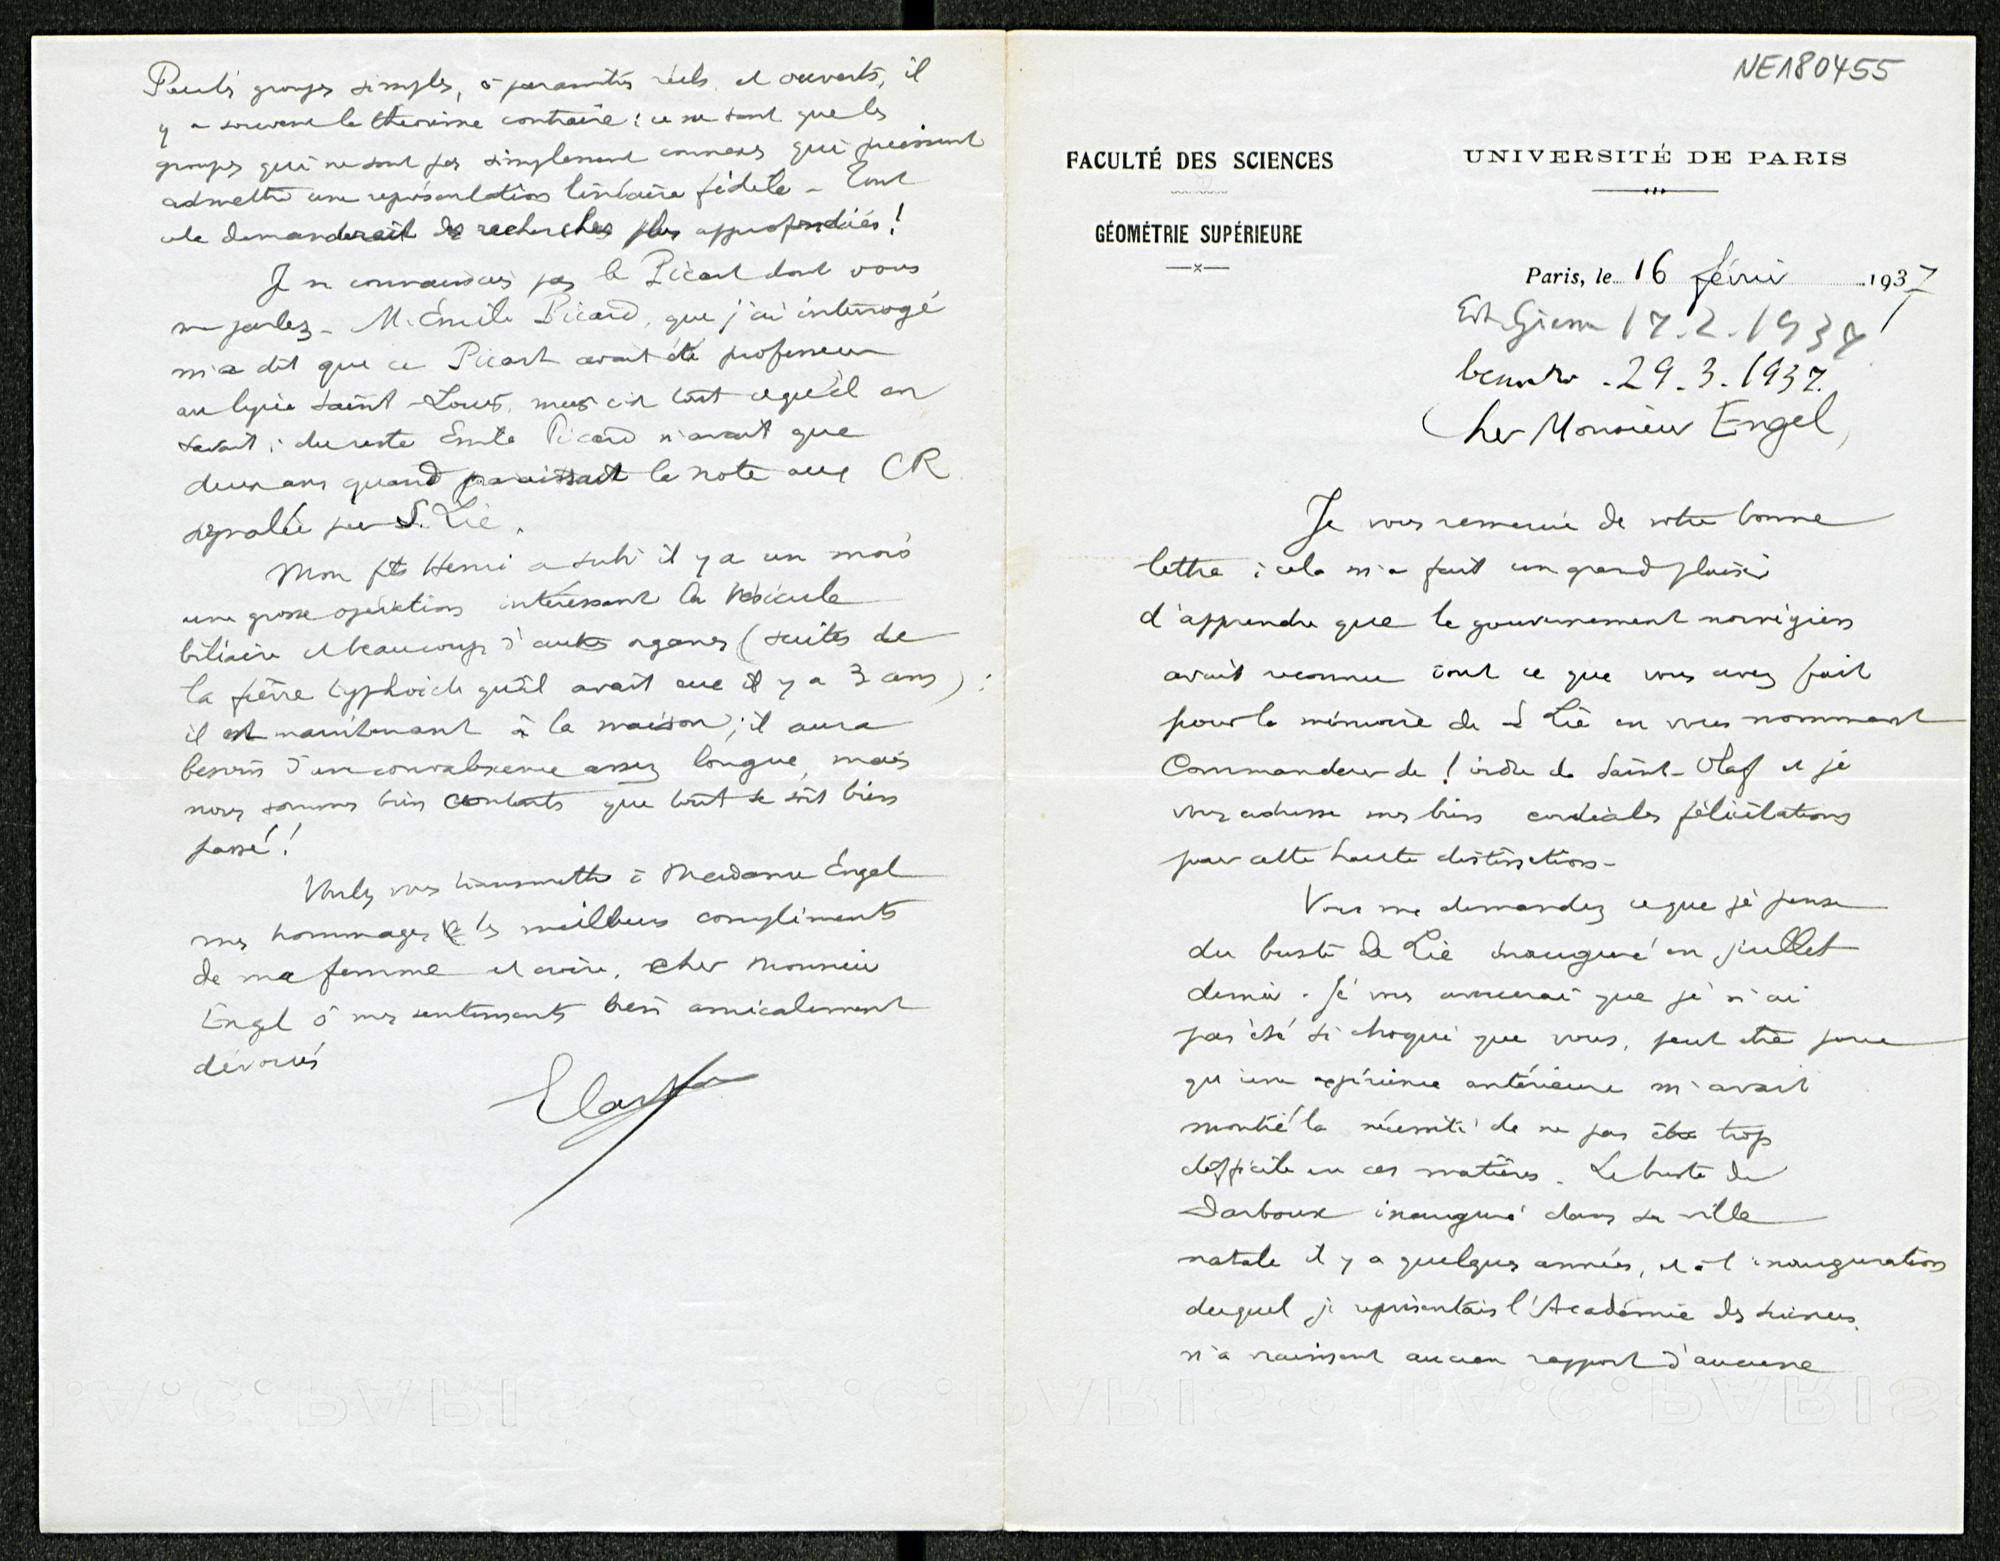 NE180455
FACULTÉ DES SCIENCES
GÉOMÉTRIE SUPÉRIEURE
UNIVERSITÉ DE PARIS
Paris, le 16 février 1937
17.2.1937
29.3.1937.
Cher Monsieur Engel,
Je vous remercie de votre bonne
lettre ; cela m'a fait un grand plaisir
d'apprendre que le gouvernement norvégien
avait reconnu tout ce que vous avez fait
pour la mémoire de S Lie en vous nommant
Commandeur de l'ordre de Saint-Olaf et je
vous adresse mes bien cordiales félicitations
pour cette haute distinction -
Vous me demandez ce que je pense
du buste de Lie inauguré en juillet
dernier. Je vous avouerai que je n'ai
pas été si choqué que vous, peut être parce
qu'une expérience antérieure m'avait
montré la nécessité de ne pas être trop
difficile en ces matières. Le buste de
Darboux inauguré dans sa ville
natale il y a quelques années, et à l'inauguration
duquel je représentais l'Académie des Sciences
n'a vraiment aucun rapport d'aucune
Pour les groupes simples, à paramètres réels et ouverts, il
y a souvent le théorème contraire : ce ne sont que les
groupes qui ne sont pas simplement connexes qui puissent
admettre une représentation linéaire fidèle - Tout
cela demanderait des recherches plus approfondies !
Je ne connaissais pas le Picart dont vous
me parlez - M. Emile Picard, que j'ai interrogé
m'a dit que ce Picart avait été professeur
au lycée Saint-Louis, mais c'est tout ce qu'il en
savait ; du reste Emile Picard n'avait que
deux ans quand paraissait la note aux CR
signalée par S. Lie.
Mon fils Henri a subi il y a un mois
une grosse opération intéressant la vésicule
biliaire et beaucoup d'autres organes (suites de
la fièvre typhoïde qu'il avait eue il y a 3 ans) :
il est maintenant à la maison ; il aura
besoin d'une convalescence assez longue, mais
nous sommes bien contents que tout se soit bien
passé !
Voulez vous transmettre à Madame Engel
mes hommages & les meilleurs compliments
de ma femme et croire, cher Monsieur
Engel à mes sentiments bien amicalement
dévoués
E Cartan